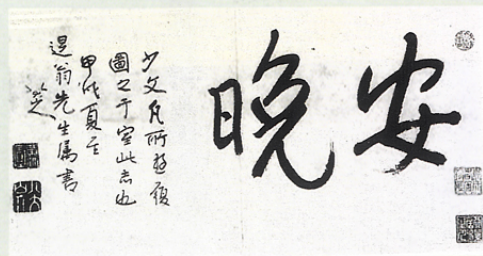 安晚
少文凡所遊履
圖之于室此志也
甲戌夏至
退翁先生属書